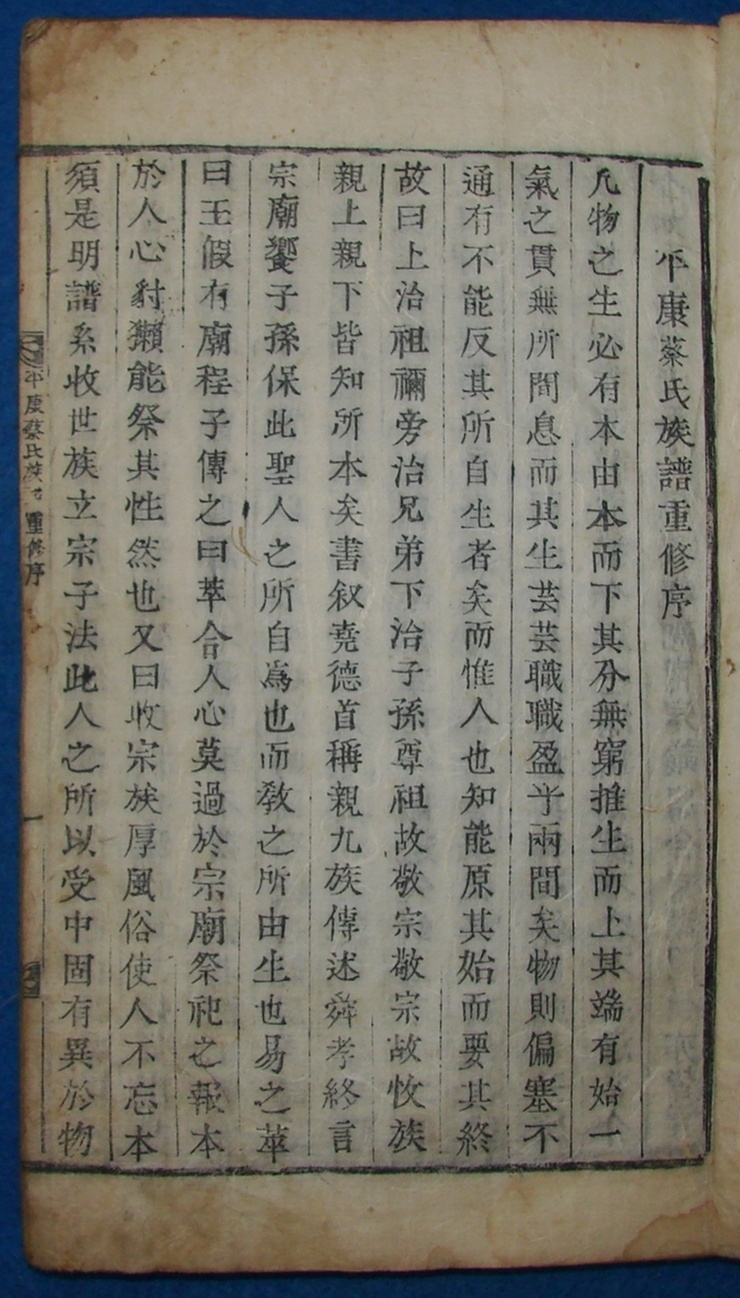 平康蔡氏族譜重修序
凡物之生必有本由本而下其分無窮推生而上其端有始一
氣之貫無所間息而其生芸芸職職盈乎兩間矣物則偏塞不
通有不能反其所自生者矣而惟人也知能原其始而要其終
故曰上治祖禰旁治兄弟下治子孫尊祖故敬宗敬宗故收族
親上親下皆知所本矣書叙堯德首稱親九族傳述舜孝終言
宗廟饗子孫保此聖人之所自爲也而教之所由生也易之萃
曰王假有廟程子傳之曰萃合人心莫過於宗廟祭祀之報本
於人心豺獺能祭其性然也又曰收宗族厚風俗使人不忘本
須是明譜系收世族立宗子法此人之所以受中固有異於物
平康蔡氏族 重修序
一